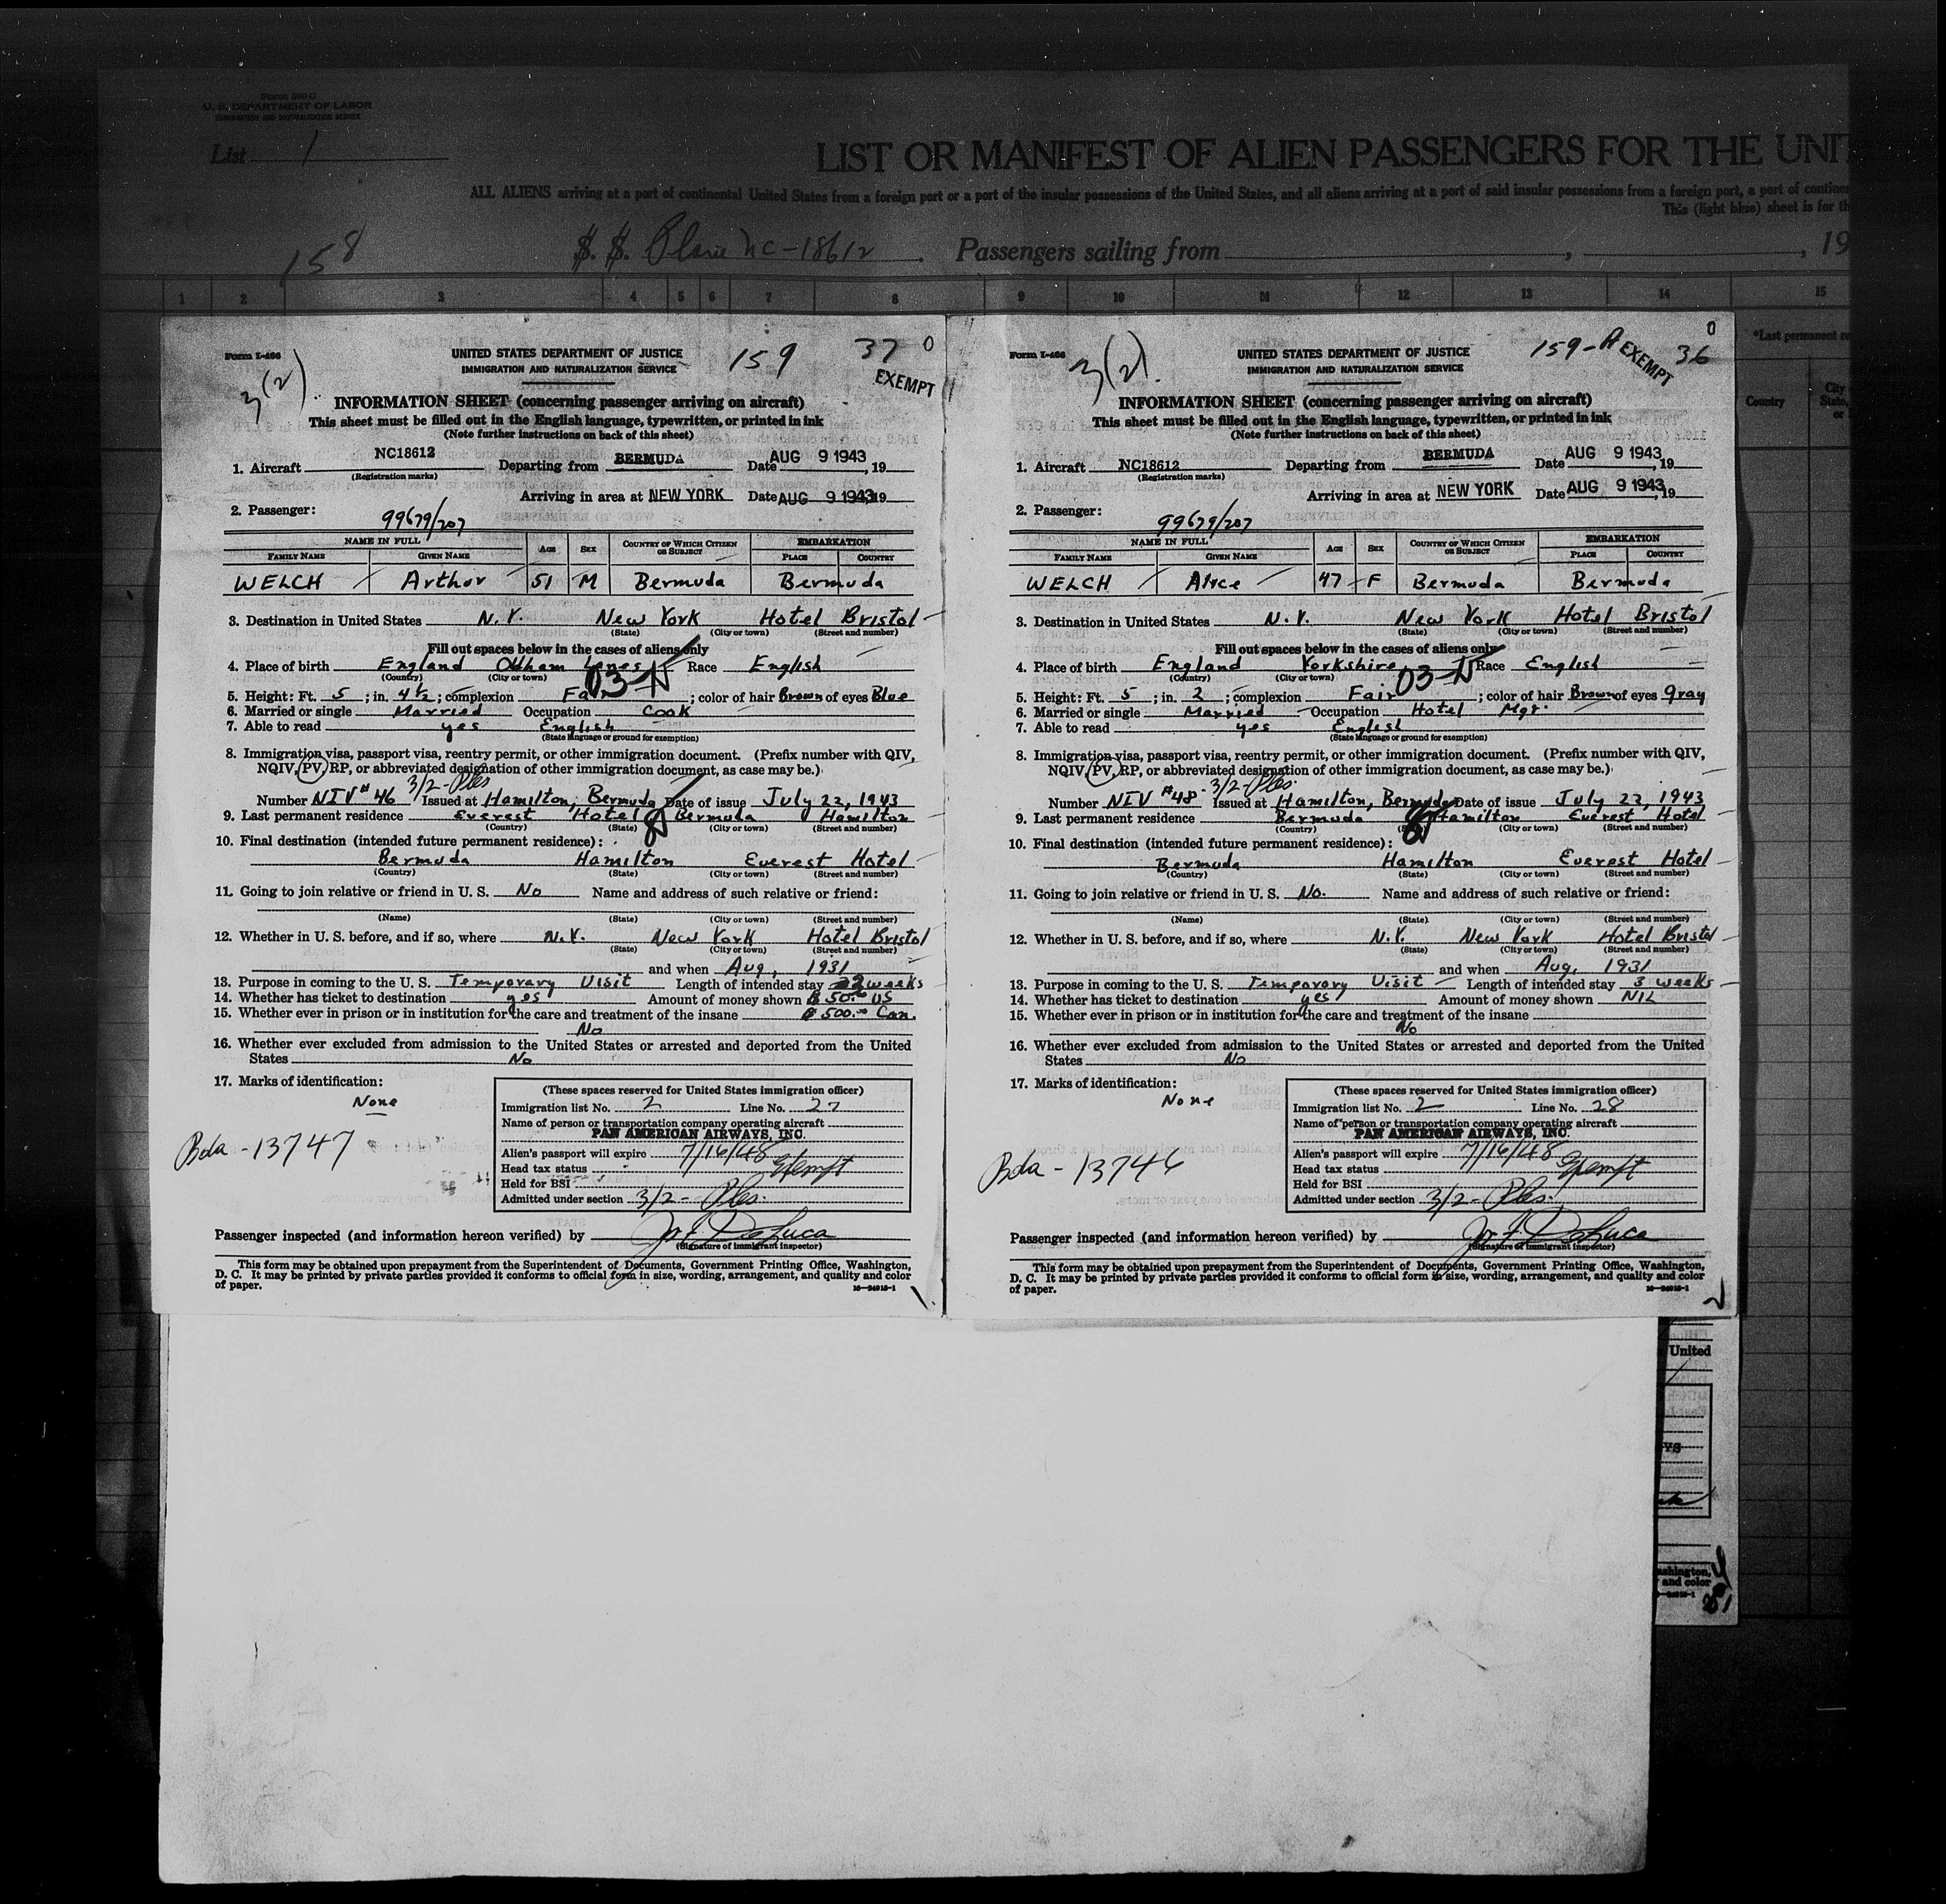 Form 500 C
U. S. DEPARTMENT OF LABOR
IMMIGRATION AND NATURALIZATION SERVICE
List 1
LIST OR MANIFEST OF ALIEN PASSENGERS FOR THE UNIT
ALL ALIENS arriving at a port of continental United States from a foreign port or a port of the insular possessions of the United States, and all aliens arriving at a port of said insular possessions from a foreign port, a port of contine
This (light blue) sheet is for th
158
S. S. Plane NC-18612. Passengers sailing from , , 19
1 2 3 4 5 6 7 8 9 10 11 12 13 14 15
*Last permanent re
Country
City
State,
or
Form I-466
UNITED STATES DEPARTMENT OF JUSTICE
IMMIGRATION AND NATURALIZATION SERVICE
159 37 0
EXEMPT
3(2)
INFORMATION SHEET (concerning passenger arriving on aircraft)
This sheet must be filled out in the English language, typewritten, or printed in ink
(Note further instructions on back of this sheet)
1. Aircraft NC18612 Departing from BERMUDA Date AUG 9 1943, 19
(Registration marks)
Arriving in area at NEW YORK Date AUG 9 1943, 19
2. Passenger: 99679/207
NAME IN FULL AGE SEX COUNTRY OF WHICH CITIZEN OR SUBJECT EMBARKATION
FAMILY NAME GIVEN NAME PLACE COUNTRY
WELCH Arthur 51 M Bermuda Bermuda
3. Destination in United States N.Y. New York Hotel Bristol
(State) (City or town) (Street and number)
Fill out spaces below in the cases of aliens only
4. Place of birth England Oldham Lancs Race English
(Country) (City or town)
03-N
5. Height: Ft. 5; in. 4½; complexion Fair; color of hair Brown of eyes Blue
6. Married or single Married Occupation Cook
7. Able to read yes English
(State language or ground for exemption)
8. Immigration visa, passport visa, reentry permit, or other immigration document. (Prefix number with QIV,
NQIV, PV, RP, or abbreviated designation of other immigration document, as case may be.)
3/2-Ples
Number NIV #46 Issued at Hamilton, Bermuda Date of issue July 22, 1943
9. Last permanent residence Everest Hotel Bermuda Hamilton
(Country) (State) (City or town) (Street and number)
10. Final destination (intended future permanent residence):
Bermuda Hamilton Everest Hotel
(Country) (State) (City or town) (Street and number)
11. Going to join relative or friend in U. S. No Name and address of such relative or friend:
(Name) (State) (City or town) (Street and number)
12. Whether in U. S. before, and if so, where N.Y. New York Hotel Bristol
(State) (City or town) (Street and number)
and when Aug, 1931
13. Purpose in coming to the U. S. Temporary Visit Length of intended stay weeks
14. Whether has ticket to destination yes Amount of money shown $50.00 US
15. Whether ever in prison or in institution for the care and treatment of the insane $500.00 Can.
No
16. Whether ever excluded from admission to the United States or arrested and deported from the United
States No
17. Marks of identification:
None
Bda - 13747
(These spaces reserved for United States immigration officer)
Immigration list No. 2 Line No. 27
Name of person or transportation company operating aircraft
PAN AMERICAN AIRWAYS, INC.
Alien's passport will expire 7/16/48
Head tax status Exempt
Held for BSI
Admitted under section 3/2 - Ples.
Passenger inspected (and information hereon verified) by Jos F. DeLuca
(Signature of immigrant inspector)
This form may be obtained upon prepayment from the Superintendent of Documents, Government Printing Office, Washington,
D. C. It may be printed by private parties provided it conforms to official form in size, wording, arrangement, and quality and color
of paper.
16—24915-1
Form I-466
UNITED STATES DEPARTMENT OF JUSTICE
IMMIGRATION AND NATURALIZATION SERVICE
159-A EXEMPT 36 0
3(2).
INFORMATION SHEET (concerning passenger arriving on aircraft)
This sheet must be filled out in the English language, typewritten, or printed in ink
(Note further instructions on back of this sheet)
1. Aircraft NC18612 Departing from BERMUDA Date AUG 9 1943, 19
(Registration marks)
Arriving in area at NEW YORK Date AUG 9 1943, 19
2. Passenger: 99679/207
NAME IN FULL AGE SEX COUNTRY OF WHICH CITIZEN OR SUBJECT EMBARKATION
FAMILY NAME GIVEN NAME PLACE COUNTRY
WELCH Alice 47 F Bermuda Bermuda
3. Destination in United States N.Y. New York Hotel Bristol
(State) (City or town) (Street and number)
Fill out spaces below in the cases of aliens only
4. Place of birth England Yorkshire Race English
(Country) (City or town)
03-N
5. Height: Ft. 5; in. 2; complexion Fair; color of hair Brown of eyes gray
6. Married or single Married Occupation Hotel Mgr.
7. Able to read yes English
(State language or ground for exemption)
8. Immigration visa, passport visa, reentry permit, or other immigration document. (Prefix number with QIV,
NQIV, PV, RP, or abbreviated designation of other immigration document, as case may be.)
3/2-Ples.
Number NIV #48 Issued at Hamilton, Bermuda Date of issue July 22, 1943
9. Last permanent residence Bermuda Hamilton Everest Hotel
(Country) (State) (City or town) (Street and number)
10. Final destination (intended future permanent residence):
Bermuda Hamilton Everest Hotel
(Country) (State) (City or town) (Street and number)
11. Going to join relative or friend in U. S. No. Name and address of such relative or friend:
(Name) (State) (City or town) (Street and number)
12. Whether in U. S. before, and if so, where N.Y. New York Hotel Bristol
(State) (City or town) (Street and number)
and when Aug, 1931
13. Purpose in coming to the U. S. Temporary Visit Length of intended stay 3 weeks
14. Whether has ticket to destination yes Amount of money shown NIL
15. Whether ever in prison or in institution for the care and treatment of the insane
No
16. Whether ever excluded from admission to the United States or arrested and deported from the United
States No
17. Marks of identification:
None
Bda - 13746
(These spaces reserved for United States immigration officer)
Immigration list No. 2 Line No. 28
Name of person or transportation company operating aircraft
PAN AMERICAN AIRWAYS, INC.
Alien's passport will expire 7/16/48
Head tax status Exempt
Held for BSI
Admitted under section 3/2 - Ples.
Passenger inspected (and information hereon verified) by Jos F. DeLuca
(Signature of immigrant inspector)
This form may be obtained upon prepayment from the Superintendent of Documents, Government Printing Office, Washington,
D. C. It may be printed by private parties provided it conforms to official form in size, wording, arrangement, and quality and color
of paper.
16—24915-1
United
YS
ashington,
and color
—24915-1